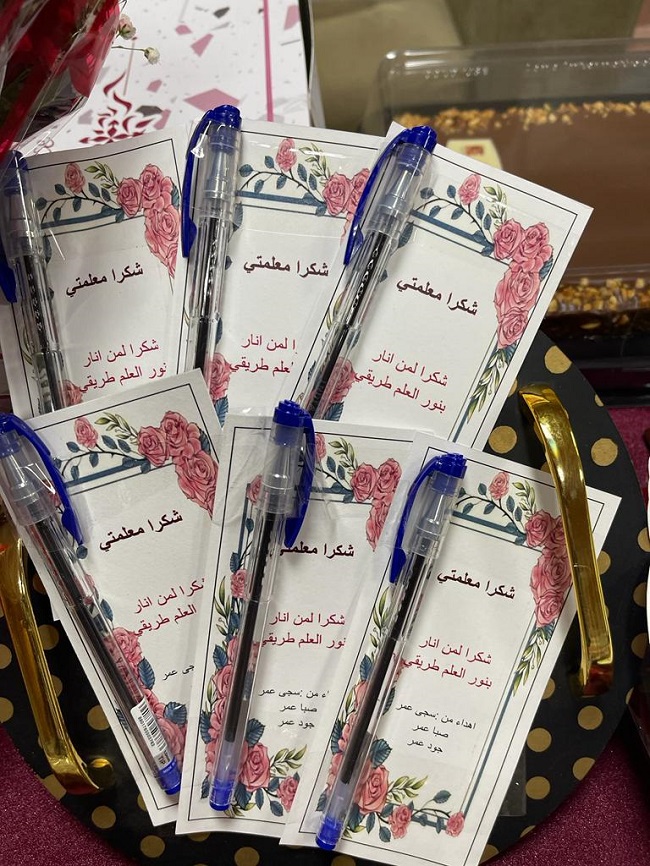 شكرا معلمتي
شكرا لمن انار
نور العلم طريقي
شكرا معلمتي
شكرا لمن انار
بنور العلم طريقي
شكرا معلمتي
شكرا لمن انار
بنور العلم طريقي
شكرا معلمتي
شكرا لمن انار
العلم طريقي
عمر
شكرا معلمتي
شكرا لمن انار
بنور العلم طريقي
من :سجى عمر
صبا عمر
جود عمر
شكرا معلمتي
شكرا لمن انار
بنور العلم طريقي
اهداء من :سجى عمر
صبا عمر
جود عمر